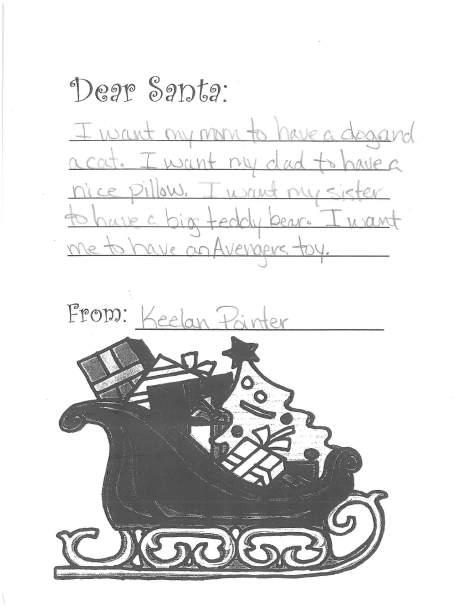 Dear Santa:
I want my mom to have a dog and
a cat. I want my dad to have a
nice pillow. I want my sister
to have a big teddy bear. I want
me to have an Avengers toy.
From: Keelan Painter